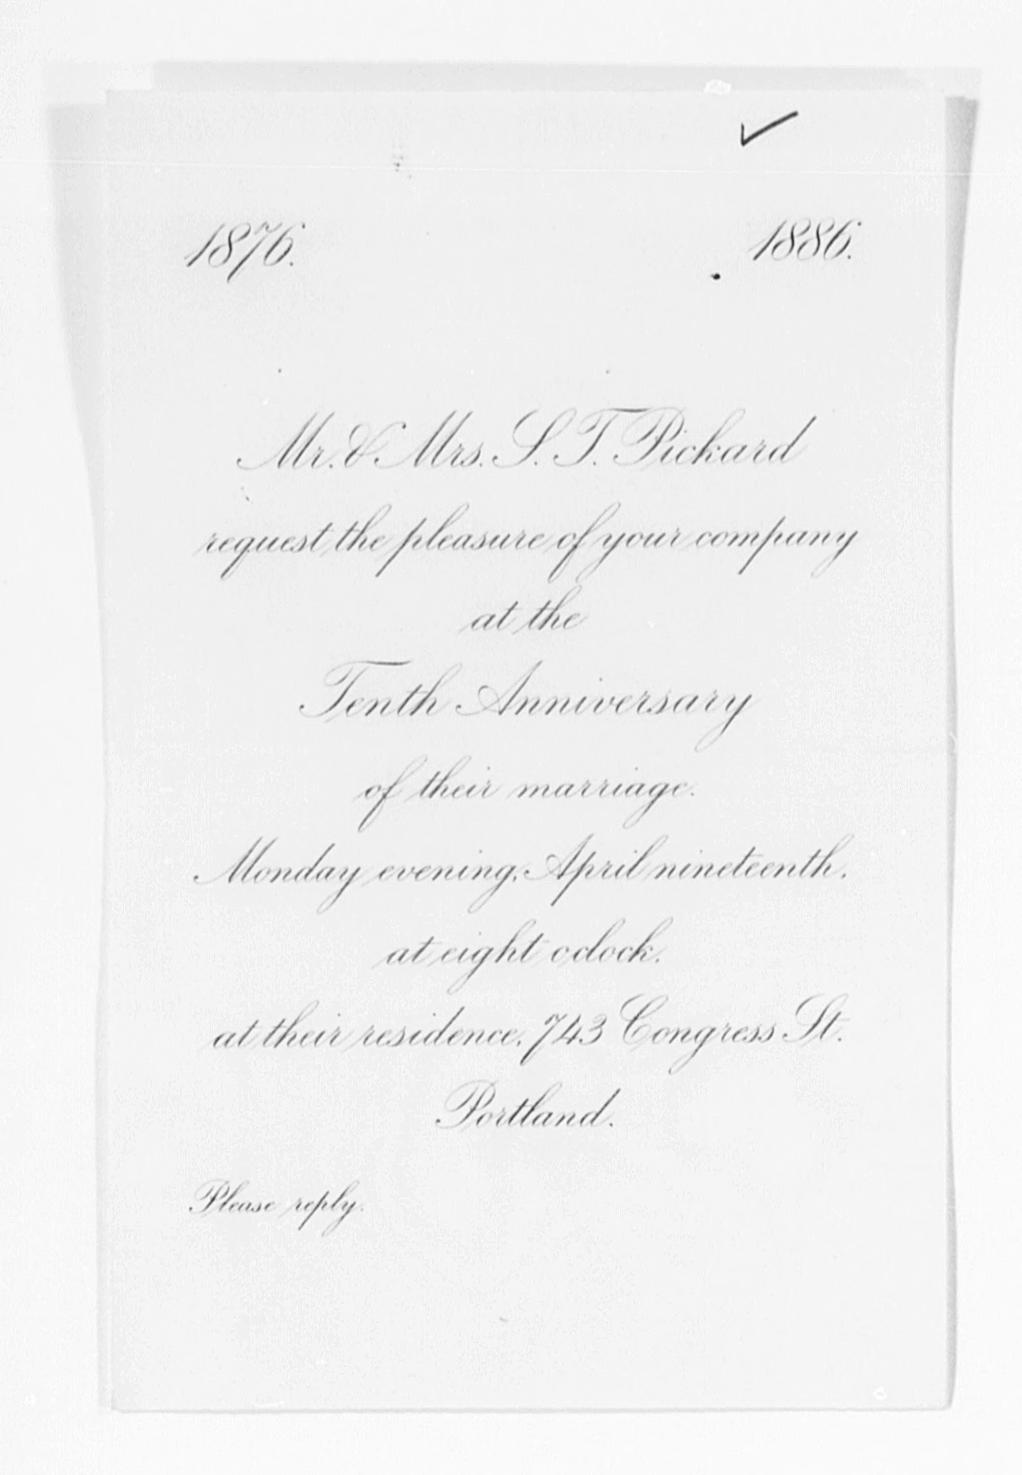 1876. 1886.
Mr. & Mrs. S. T. Pickard
request the pleasure of your company
at the
Tenth Anniversary
of their marriage.
Monday evening, April nineteenth,
at eight o'clock.
at their residence, 743 Congress St.
Portland.
Please reply.